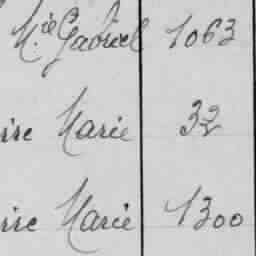 M.ie Gabriel 1063
ire Marie 32
ire Marie 1300